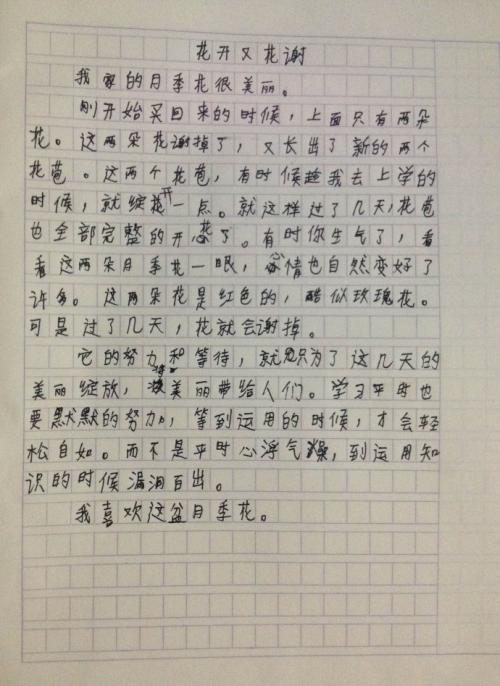 花开又花谢
我家的月季花很美丽。
刚开始买回来的时候，上面只有两朵
花。这两朵花谢掉了，又长出了新的两个
花苞。这两个花苞，有时候趁我去上学的
时候，就绽开一点。就这样过了几天，花苞
也全部完整的开花了。有时你生气了，看
看这两朵月季花一眼，心情也自然变好了
许多。这两朵花是红色的，酷似玫瑰花。
可是过了几天，花就会谢掉。
它的努力和等待，就只为了这几天的
美丽绽放，将美丽带给人们。学习平时也
要默默的努力，等到运用的时候，才会轻
松自如。而不是平时心浮气躁，到运用知
识的时候漏洞百出。
我喜欢这盆月季花。